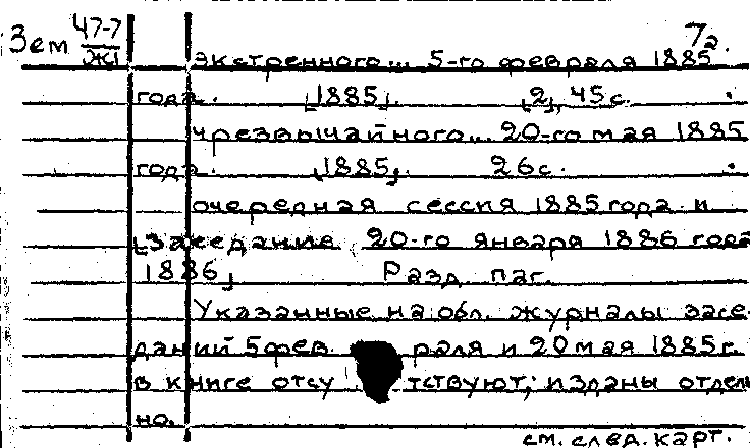 Зем 47-7 7а.
Ж1 экстренного... 5-го февраля 1885
года. [1885]. [2], 45 с.
чрезвычайного... 20-го мая 1885
года. [1885]. 26 с.
очередная сессия 1885 года и
[заседание 20-го января 1886 года
1886] Разд. паг.
Указанные на обл. журналы засе-
даний 5 фев раля и 20 мая 1885 г.
в книге отсу тствуют; изданы отдель
но.
см. след. карт.